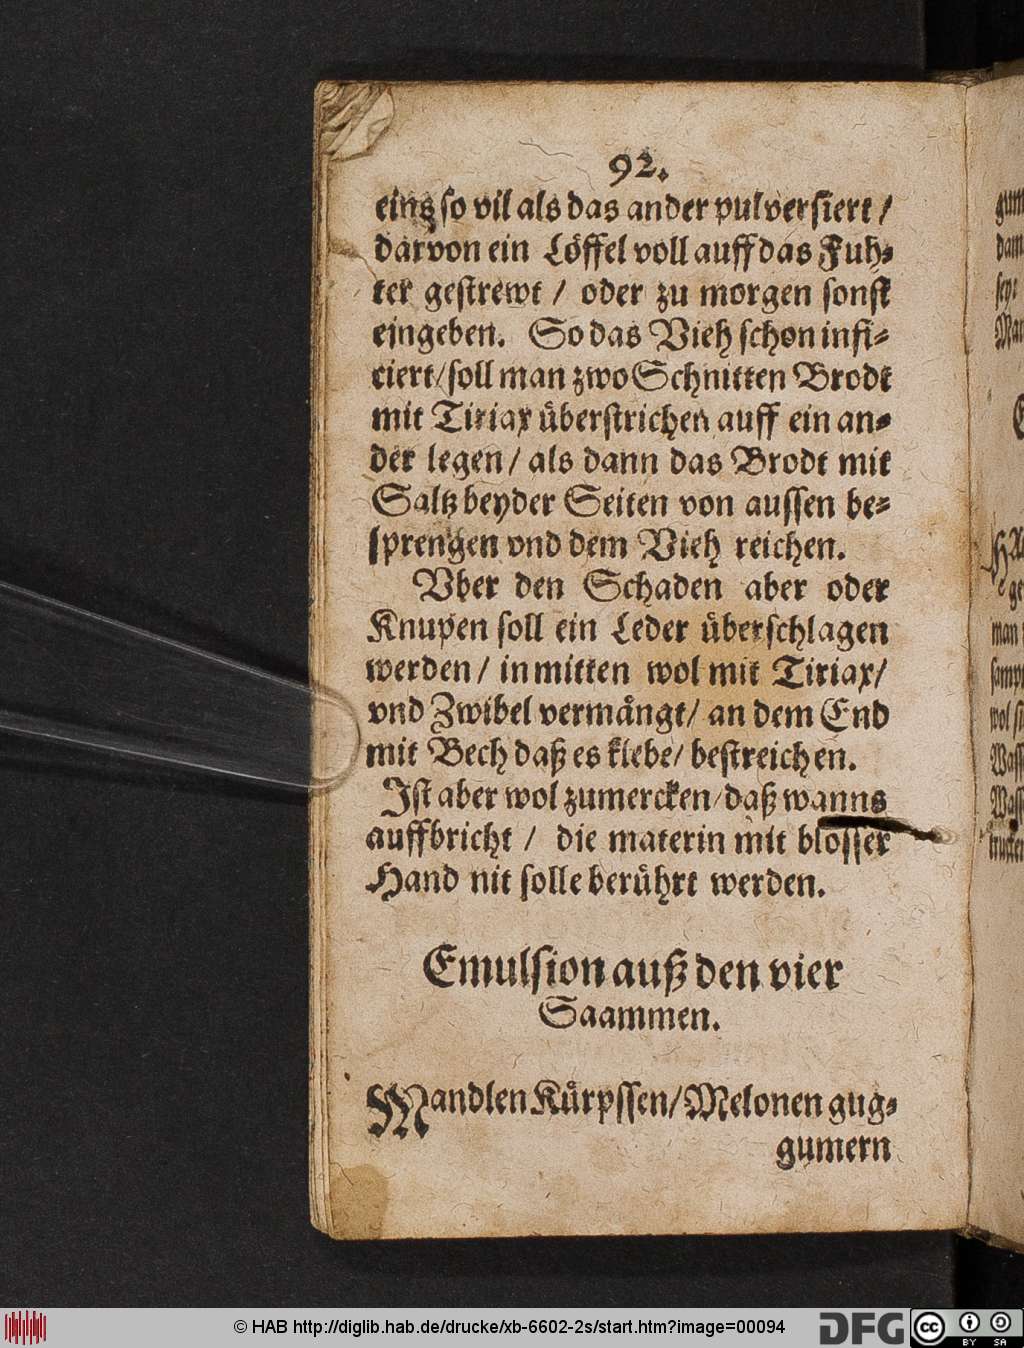 92.
eins so vil als das ander pulversiert /
darvon ein Löffel voll auff das Fuh⸗
ter gestrewt / oder zu morgen sonst
eingeben. So das Vieh schon infi⸗
ciert / soll man zwo Schnitten Brodt
mit Tiriax überstrichen auff ein an⸗
der legen / als dann das Brodt mit
Saltz beyder Seiten von aussen be⸗
sprengen vnd dem Vieh reichen.
Vber den Schaden aber oder
Knupen soll ein Leder überschlagen
werden / in mitten wol mit Tiriax /
vnd Zwibel vermängt / an dem End
mit Bech daß es klebe / bestreichen.
Ist aber wol zumercken / daß wanns
auffbricht / die materin mit blosser
Hand nit solle berührt werden.
Emulsion auß den vier
Saammen.
Mandlen Kürpssen / Melonen gug⸗
gumern
gum
dam
sey:
man
wol
Wass
Wass
© HAB http://diglib.hab.de/drucke/xb-6602-2s/start.htm?image=00094
DFG
cc BY SA